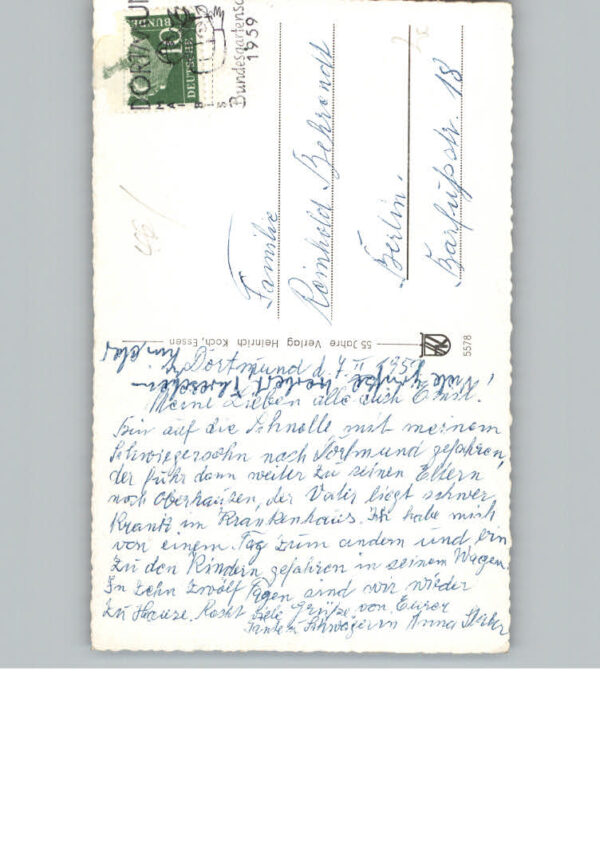 DORTMUND
Bundesgartensc
1959
10
DEUTSCHE
BUNDES
Familie
Reinhold Behrendt
Berlin.
Barfußstr. 18
55 Jahre Verlag Heinrich Koch, Essen
5578
Dortmund d. 7. II 195
Viele Grüße Norbert
Meine Lieben alle auch Ernst.
Bin auf die Schnelle mit meinem
Schwiegersohn nach Dortmund gefahren,
der fuhr dann weiter zu seinen Eltern
nach Oberhausen, der Vater liegt schwer
krank im Krankenhaus. Ich habe mich
von einem Tag zum andern und bin
zu den Kindern gefahren in seinem Wagen.
In zehn zwölf Tagen sind wir wieder
zu Hause. Recht viele Grüße von Eurer
Tante u. Schwägerin Anna